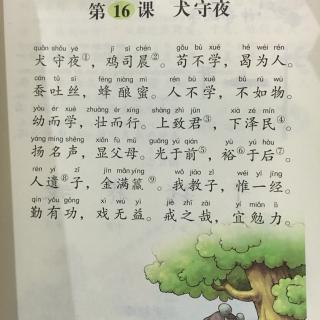 第16课 犬守夜
quǎn shǒu yè jī sī chén gǒu bù xué hé wéi rén
犬守夜①，鸡司晨②。苟不学，曷为人。
cán tǔ sī fēng niàng mì rén bù xué bù rú wù
蚕吐丝，蜂酿蜜。人不学，不如物。
yòu ér xué zhuàng ér xíng shàng zhì jūn xià zé mín
幼而学，壮而行。上致君③，下泽民④。
yáng míng shēng xiǎn fù mǔ guāng yú qián yù yú hòu
扬名声，显父母。光于前⑤，裕⑥于后⑦。
rén yí zǐ jīn mǎn yíng wǒ jiào zǐ wéi yì jīng
人遗⑧子，金满籯⑨。我教子，惟一经。
qín yǒu gōng xì wú yì jiè zhī zāi yí miǎn lì
勤有功，戏无益。戒之哉，宜勉力。